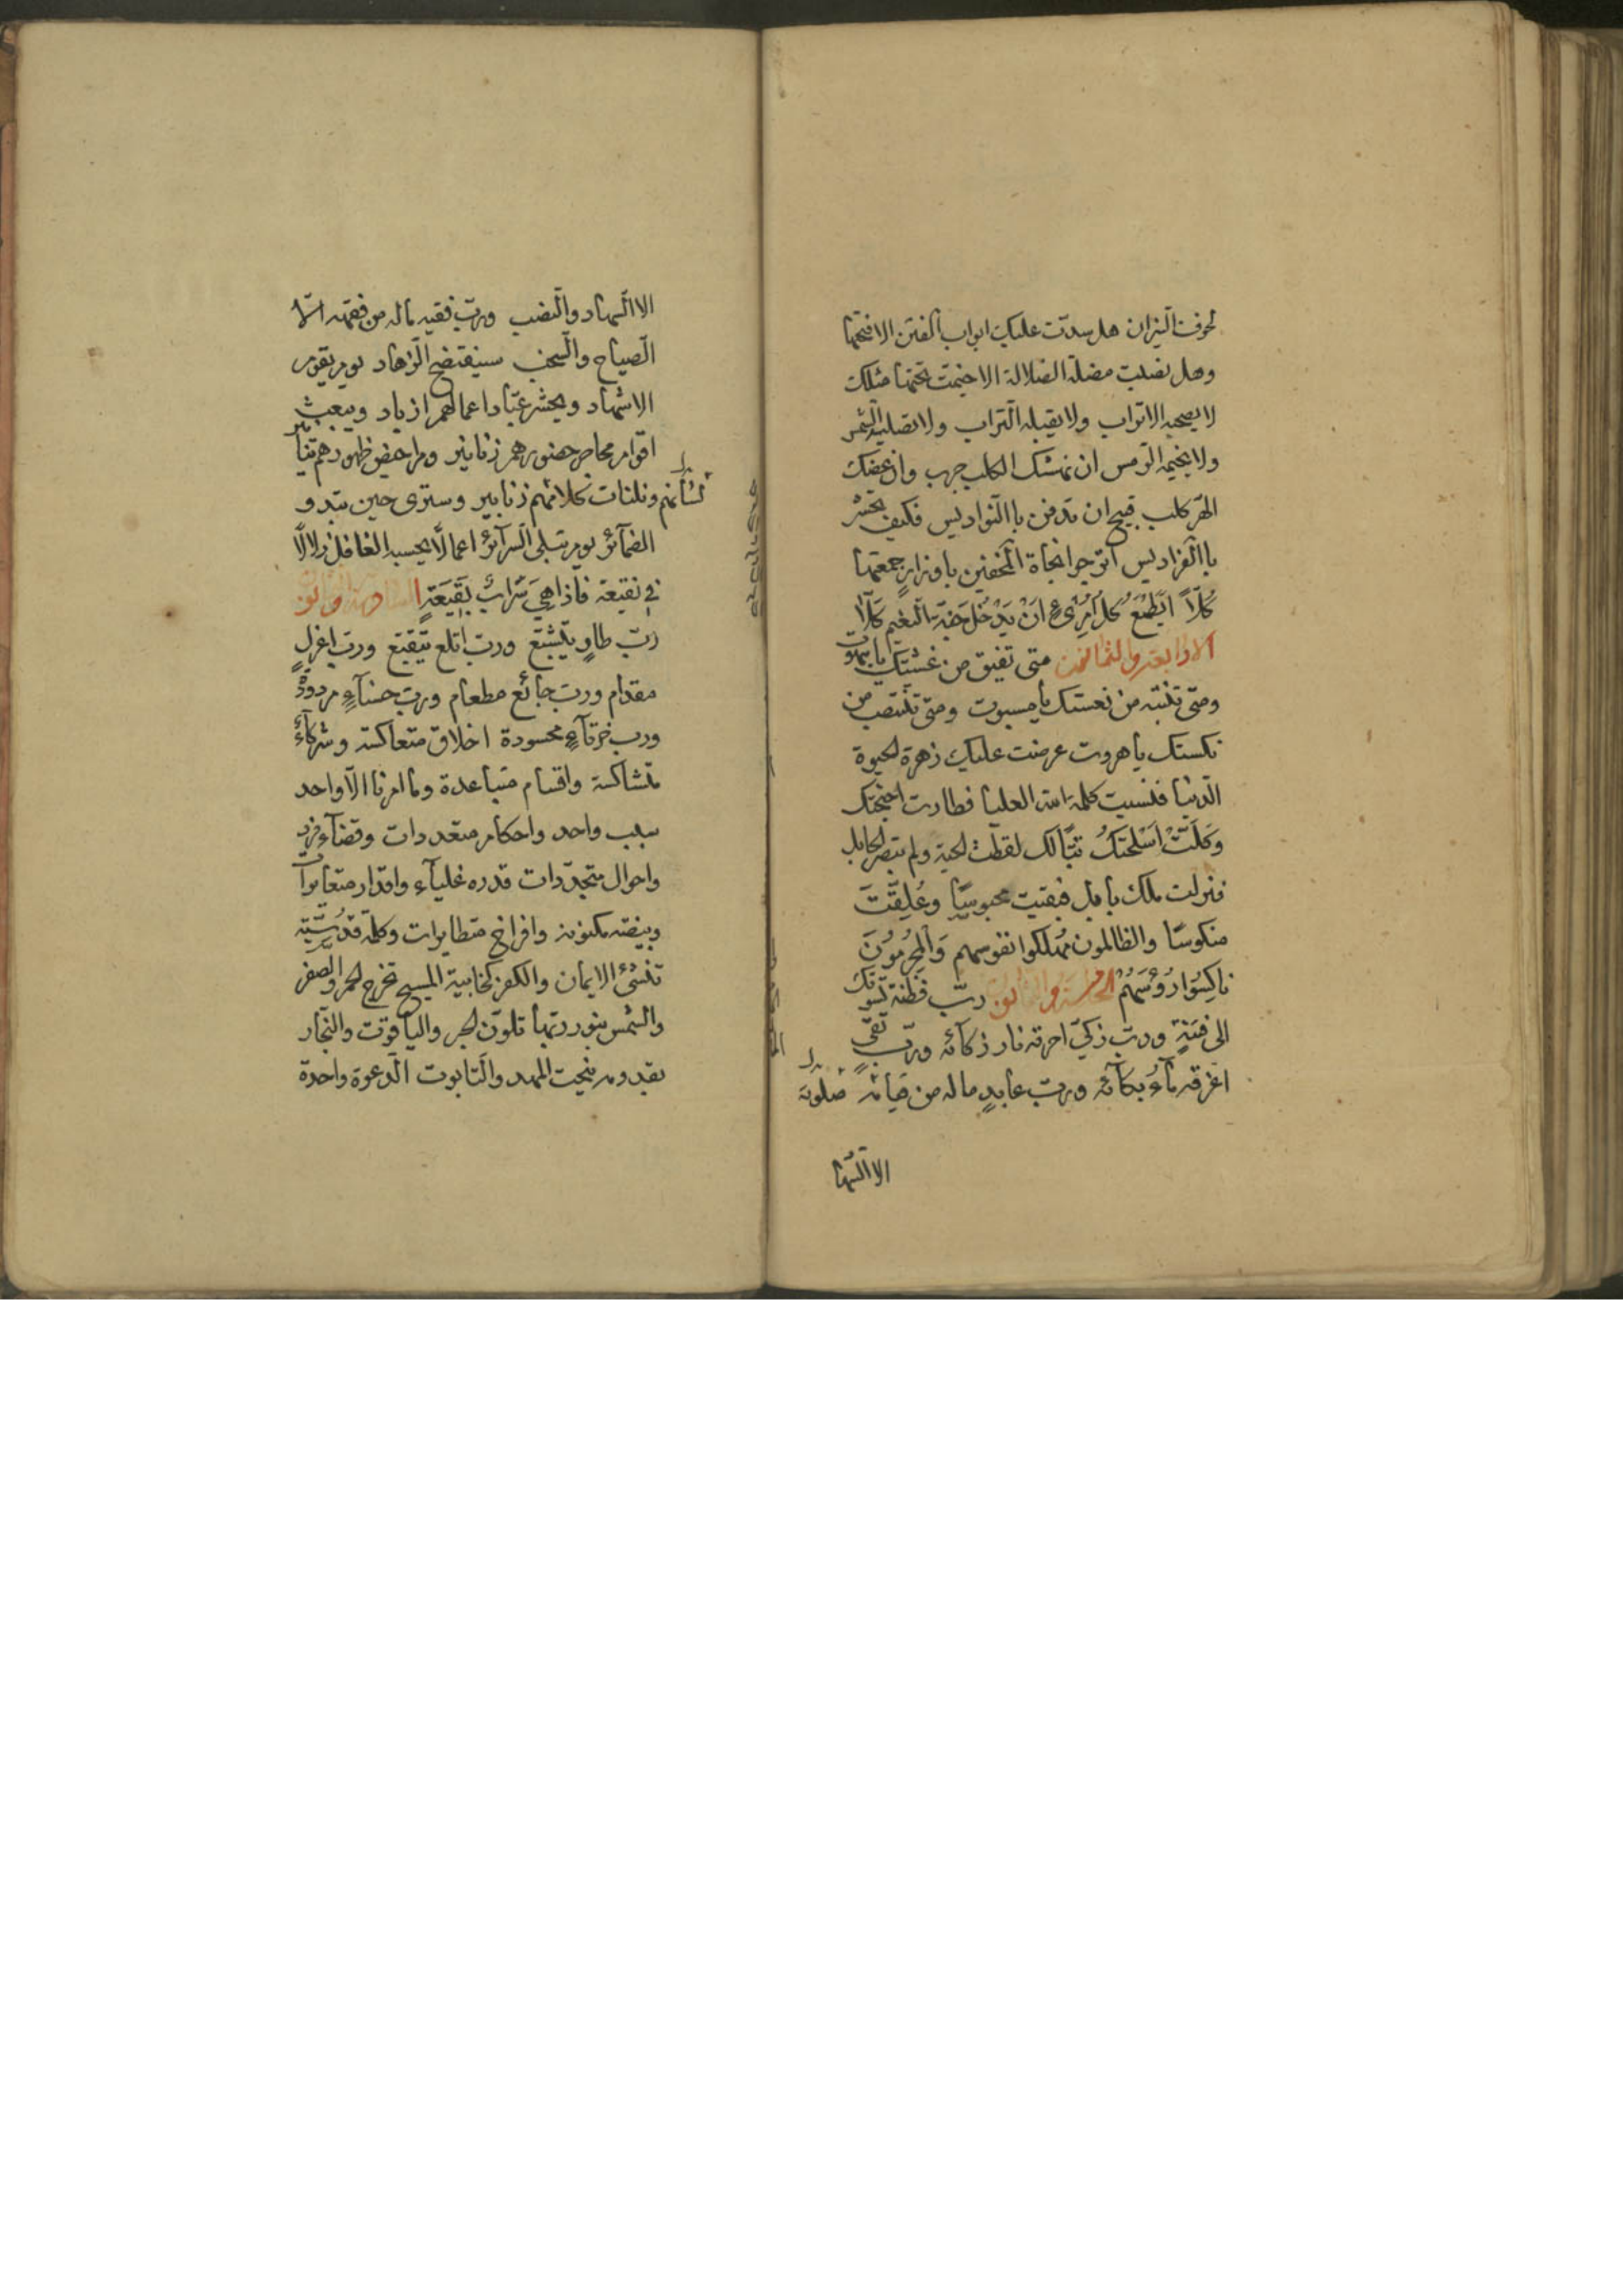 لخوف النيران هل سدت عليك ابواب الفتن الا فتحتها
وهل نصبت مضلة الضلالة الا خيمت تحتها مثلك
لا يصحبه الاتراب ولا يقبله التراب ولا تصليه الشمس
ولا يخيمه الرمس ان نهشك الكلب جرب وان عضك
الهر كلب قبيح ان تدفن بالنواديس فكيف تحشر
بالفراديس اترجوا نجاة المخفين باوزار جمعتها
كُلًّا اَيَطْمَعُ كُلُّ امْرِىءٍ اَنْ يَدْخُلَ جَنَّةَ النَّعيم كَلَّا
الرابعة والثمانون متى تفيق من غشيتك يا بهوت
ومتى تنتبه من نعستك يا مسبوت ومتى تنتصب من
نكستك يا هروت عرضت عليك زهرة الحيوة
الدنيا فنسيت كلمة الله العليا فطارت اجنحتك
وَكَلَّتْ اَسْلِحَتُكَ تبًّا لك لقطت الحبة ولم تبصر الحابل
فنزلت ملك بابل فبقيت محبوسًا وعُلِقَّتَ
منكوسًا والظالمون مُهلكوا نفوسهم وَالمجْرِمُونَ
نَاكِسُوا رُؤُسَهُمْ الخامسة والثمانون ربّ فطنة تسوقك
الى فتنةٍ وربّ زكيّ احرقه نار ذكآئه وربّ تقيّ
اغرقه مآءُ بكآئه وربّ عابدٍ ماله من قيامه صلوته
الا السّها
الا السّهاد والنّصب وربّ فقيه ماله من فقهه الّا
الصياح والسخب سيفتضح الزهاد يوم يقوم
الاشهاد ويحشر عبّاد اعمالهم ازياد ويبعث
اقوام محاصر حضورهم زنانير ومراحيض ظهورهم تنانير
لسانهم وفلتات كلامهم زنابير وسترى حين تبدو
الضمآئر يوم تبلى السرآئر اعمالًا يحسبه الغافل زلالًا
في نقيعة فاذا هِيَ سَرَابٌ بِقيعَةٍ السادسة والثمانون
ربّ طاوٍ يتشبّع وربّ اتلع يتقبّع وربّ اعزلٍ
مقدام وربّ جائع مطعام وربّ حسنآءِ مردودة
وربّ خرقآءٍ محسودة اخلاق متعاكسة وشركآءُ
متشاكسة واقسام متباعدة وما امرنا الّا واحد
سبب واحد واحكام متعددات وقضآء فرد
واحوال متجدّدات قدره علياء واقدار متغايرات
وبيضة مكنونة وافراخ متطايرات وكلمة قدسيّة
تنشئ الايمان والكفر كخابية المسيح تخرج الحمر والصفر
والشمس بنور ربّها تلوّن الحجر والياقوت والنّجّار
بقدومه ينحت المهد والتّابوت الدّعوة واحدة